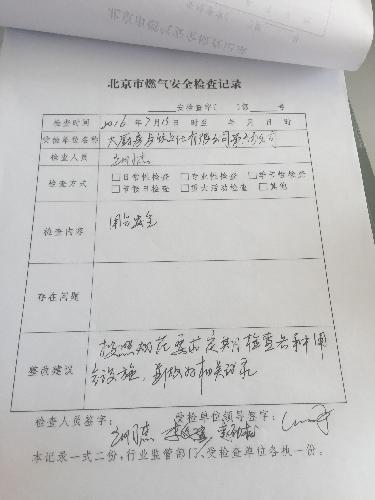 北京市燃气安全检查记录
安检签字( )第 号
检查时间 2016年7月15日 时 至 年 月 日 时
受检单位名称
检查人员
检查方式 □日常性检查 □专业性检查 □季节性检查
□节假日检查 □重大活动检查 □其他
检查内容 用气安全
存在问题
整改建议 按照规范要求定期检查各种用
气设施,并做好相关记录
检查人员签字: 受检单位领导签字:
本记录一式二份,行业监管部门、受检查单位各执一份。